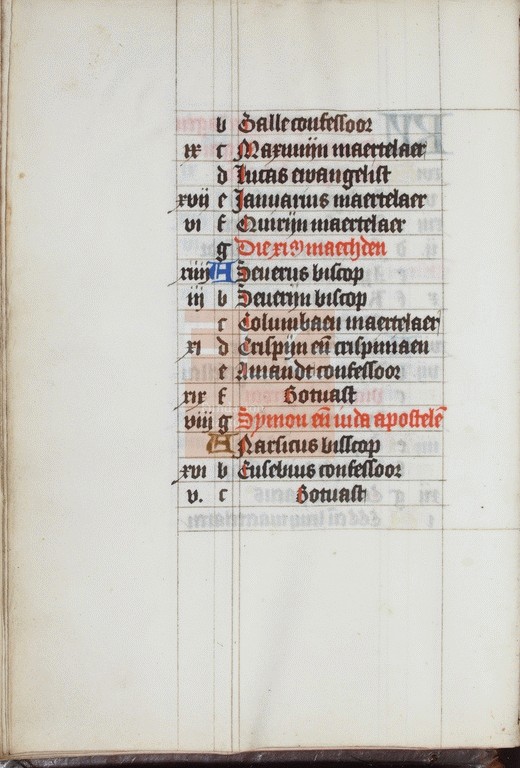 b Galle confessoor
ix c Maxımijn maertelaer
d Lucas ewangelist
xvij e Januarius maertelaer
vi f Quirijn maertelaer
g Die xiᵐ maechden
xiiij A Seuerus biscop
iij b Seuerijn biscop
c Columbaen maertelaer
xi d Crispijn eñ crispiniaen
e Amandt confessoor
xix f Gotuast
viij g Symon eñ iuda apostelē
A Narsicus bisscop
xvi b Eusebius confessoor
v. c Gotuast